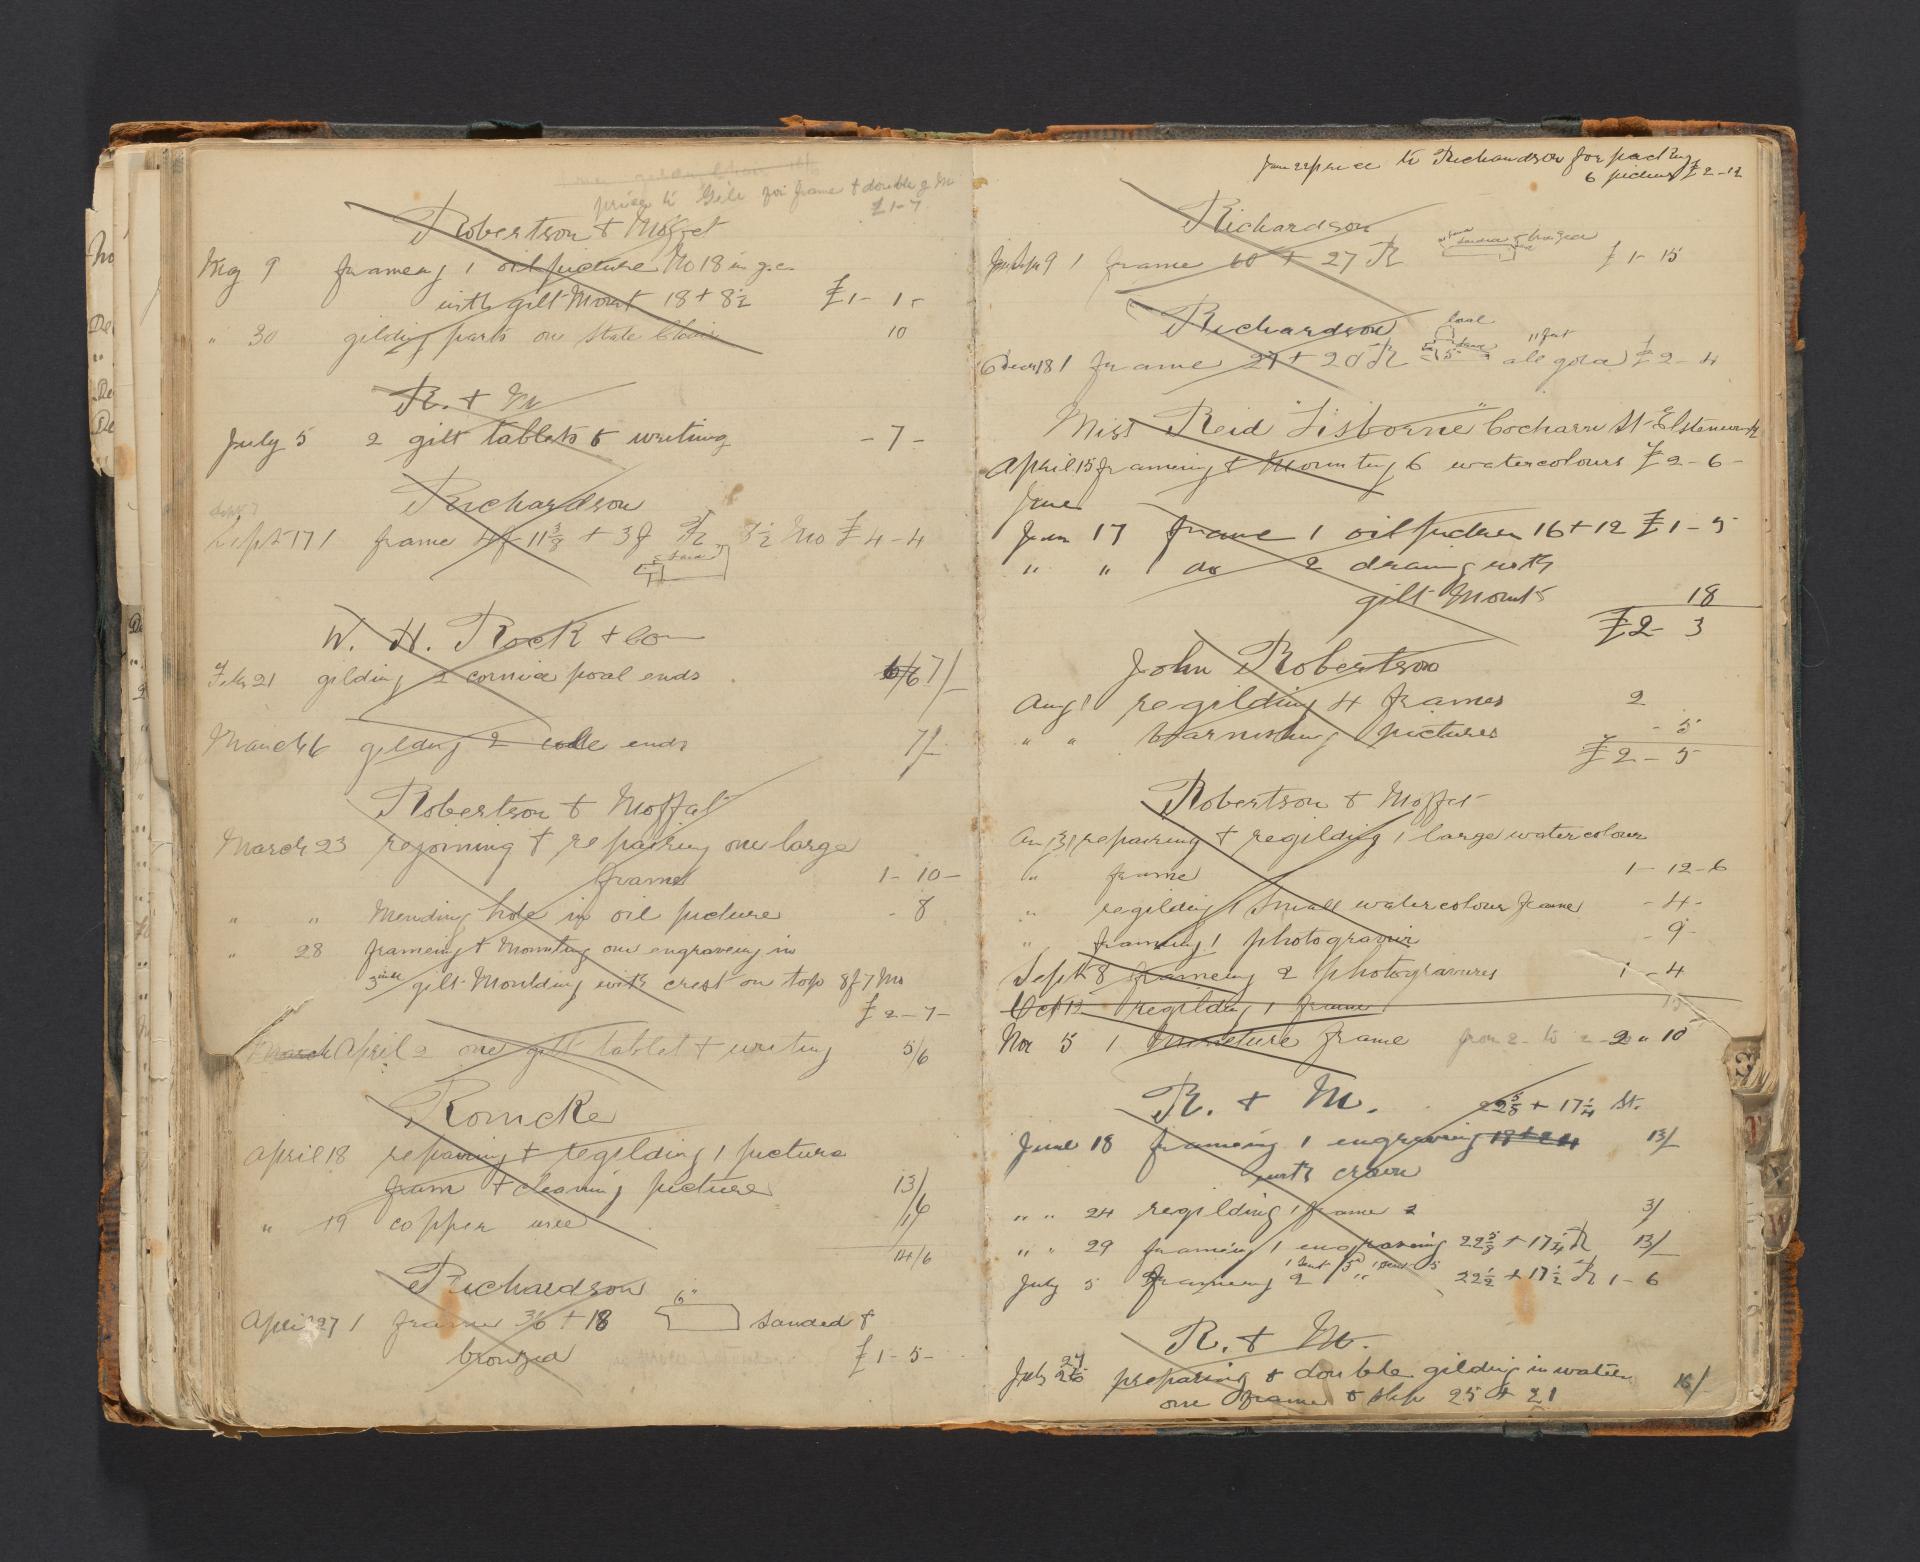 price to Gill for frame & double g M
£1-7
Robertson & Moffet
Aug 9 frameing 1 oil picture No 18 in g.c.
with gilt Mount 18 + 8½ £1- 1-
" 30 gilding parts on State Chair 10
R. & M
July 5 2 gilt tablets & writing - 7 -
Richardson
Sept 17 1 frame 4f 11⅜ + 3f 3½ No £4-4
W. H. Rock & Co
Feb 21 gilding 2 cornice poal ends 7/-
March 6 gilding 2 ends 7/-
Robertson & Moffat
March 23 rejoining & repairing one large
frame 1- 10-
" " Mending hole in oil picture - 8
" 28 frameing & Mounting one engraveing in
3 inch gilt Moulding with crest on top 8f 7 Mo
£2-7-
March April 2 one gilt tablet & writing 5/6
Romcke
April 18 repairing & regilding 1 picture
fram & cleaning picture 13/
" 19 copper wire 1/6
14/6
Richardson
April 27 1 frame 36 + 18 6" sanded &
bronzed £1-5-
June 22 price to Richardson for packing
6 pictures £2-12
Richardson
9 1 frame 60 + 27 £1- 15
Richardson
1 frame 24 + 20 all gold £2-4
Miss Reid "Lisborne" Cocharn St Elstenwick
April 15 frameing & Mounting 6 watercolours £2-6-
June
Jun 17 frame 1 oil picture 16+12 £1-5
" " do 2 draing with
gilt Mounts 18
£2- 3
John Robertson
Aug 1 regilding 4 frames 2
" " varnishing pictures - 5
£2-5
Robertson & Moffet
31 repairing & regilding 1 large watercolour
" frame 1-12-6
" regilding 1 small watercolour frame -4-
" frameing 1 photogravur - 9-
Sept 8 frameing 2 photogravures 1-4
Oct 12 regilding 1 frame
Nov 5 1 Mineture frame from 2- to 2- 2 " 10
R. & M. 22⅝ + 17¼ St.
June 18 frameing 1 engraveing 18+24 13/
with crown
" " 24 regilding 1 frame 3/
" " 29 frameing 1 engraveing 22⅝ + 17¼ 13/
July 5 frameing 2 " 22½ + 17½ 1-6
R. & M.
July 26 preparing & double gilding in water
one frame & slip 25 + 21 16/-